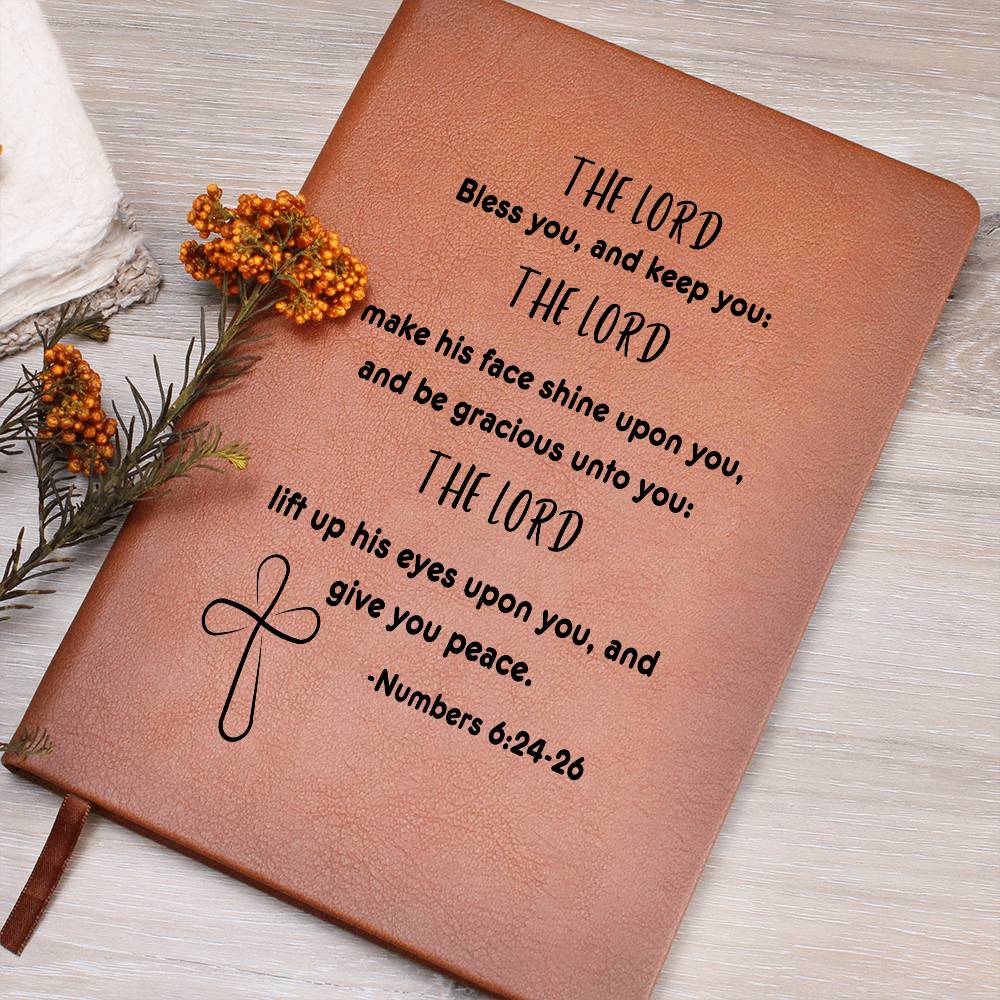 THE LORD
Bless you, and keep you:
THE LORD
make his face shine upon you,
and be gracious unto you:
THE LORD
lift up his eyes upon you, and
give you peace.
-Numbers 6:24-26